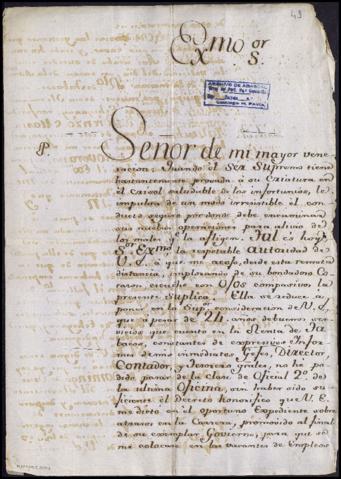 43
Exmo Sor
ARCHIVO DE ABASCAL
P. Señor de mi mayor vene
racion: Quando el Ser Supremo tiene
á su Criatura en
el Crisol saludable de los infortunios, le
impulsa de un modo irresistible al con
ducto seguro por donde debe encaminar
sus operaciones para alivio de
los males q. la afligen. Tal es hoy
Sor Exmo la respetable autoridad de
V. E. á que me acojo, desde esta remota
distancia, implorando de su bondadoso Co
razon escuche con Ojos compasivos la
presente Suplica. Ella se reduce a
poner en la Sup. consideracion de V. E.
que á pesar de 24 años de buenos ser
vicios que cuento en la Renta de Ta
bacos, constantes de expresivos Infor
mes de mis inmediatos Gefes, Director,
Contador, y Directores grales, no he po
dido pasar de la clase de Oficial 2º de
la ultima Oficina, sin haber sido su
ficiente el Decreto honorifico que V. E.
me dictó en el oportuno Expediente sobre
atrasos en la Carrera, promovido al final
de su exemplar Govierno, para que se
me colocase en las vacantes de Empleos